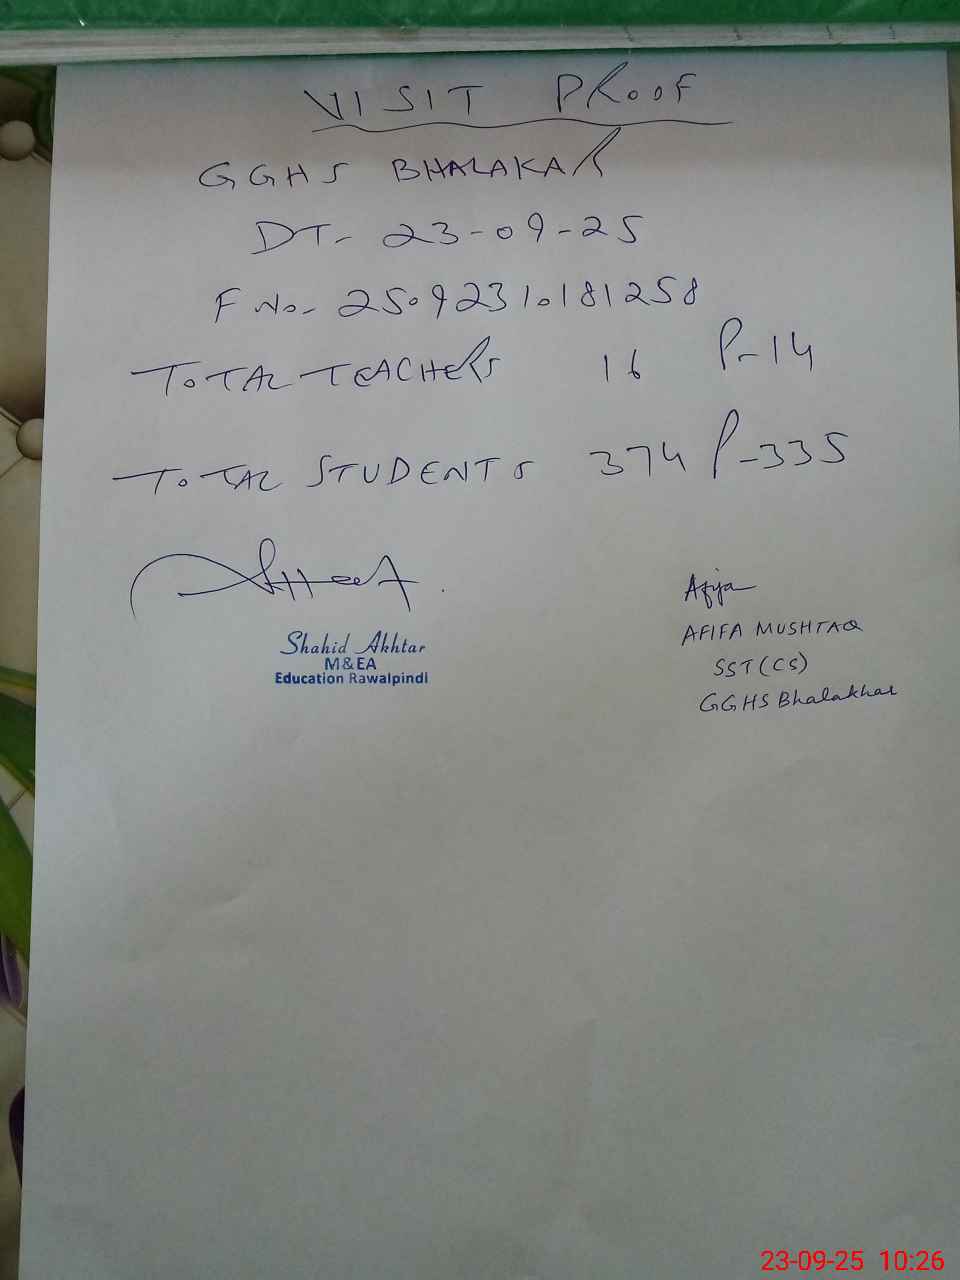 VISIT PROOF
GGHS BHALAKAR
DT- 23-09-25
F No- 25092310181258
TOTAL TEACHERS 16 P-14
TOTAL STUDENTS 374 P-335
Afifa
AFIFA MUSHTAQ
SST(CS)
GGHS Bhalakhar
Shahid Akhtar
M&EA
Education Rawalpindi
23-09-25 10:26